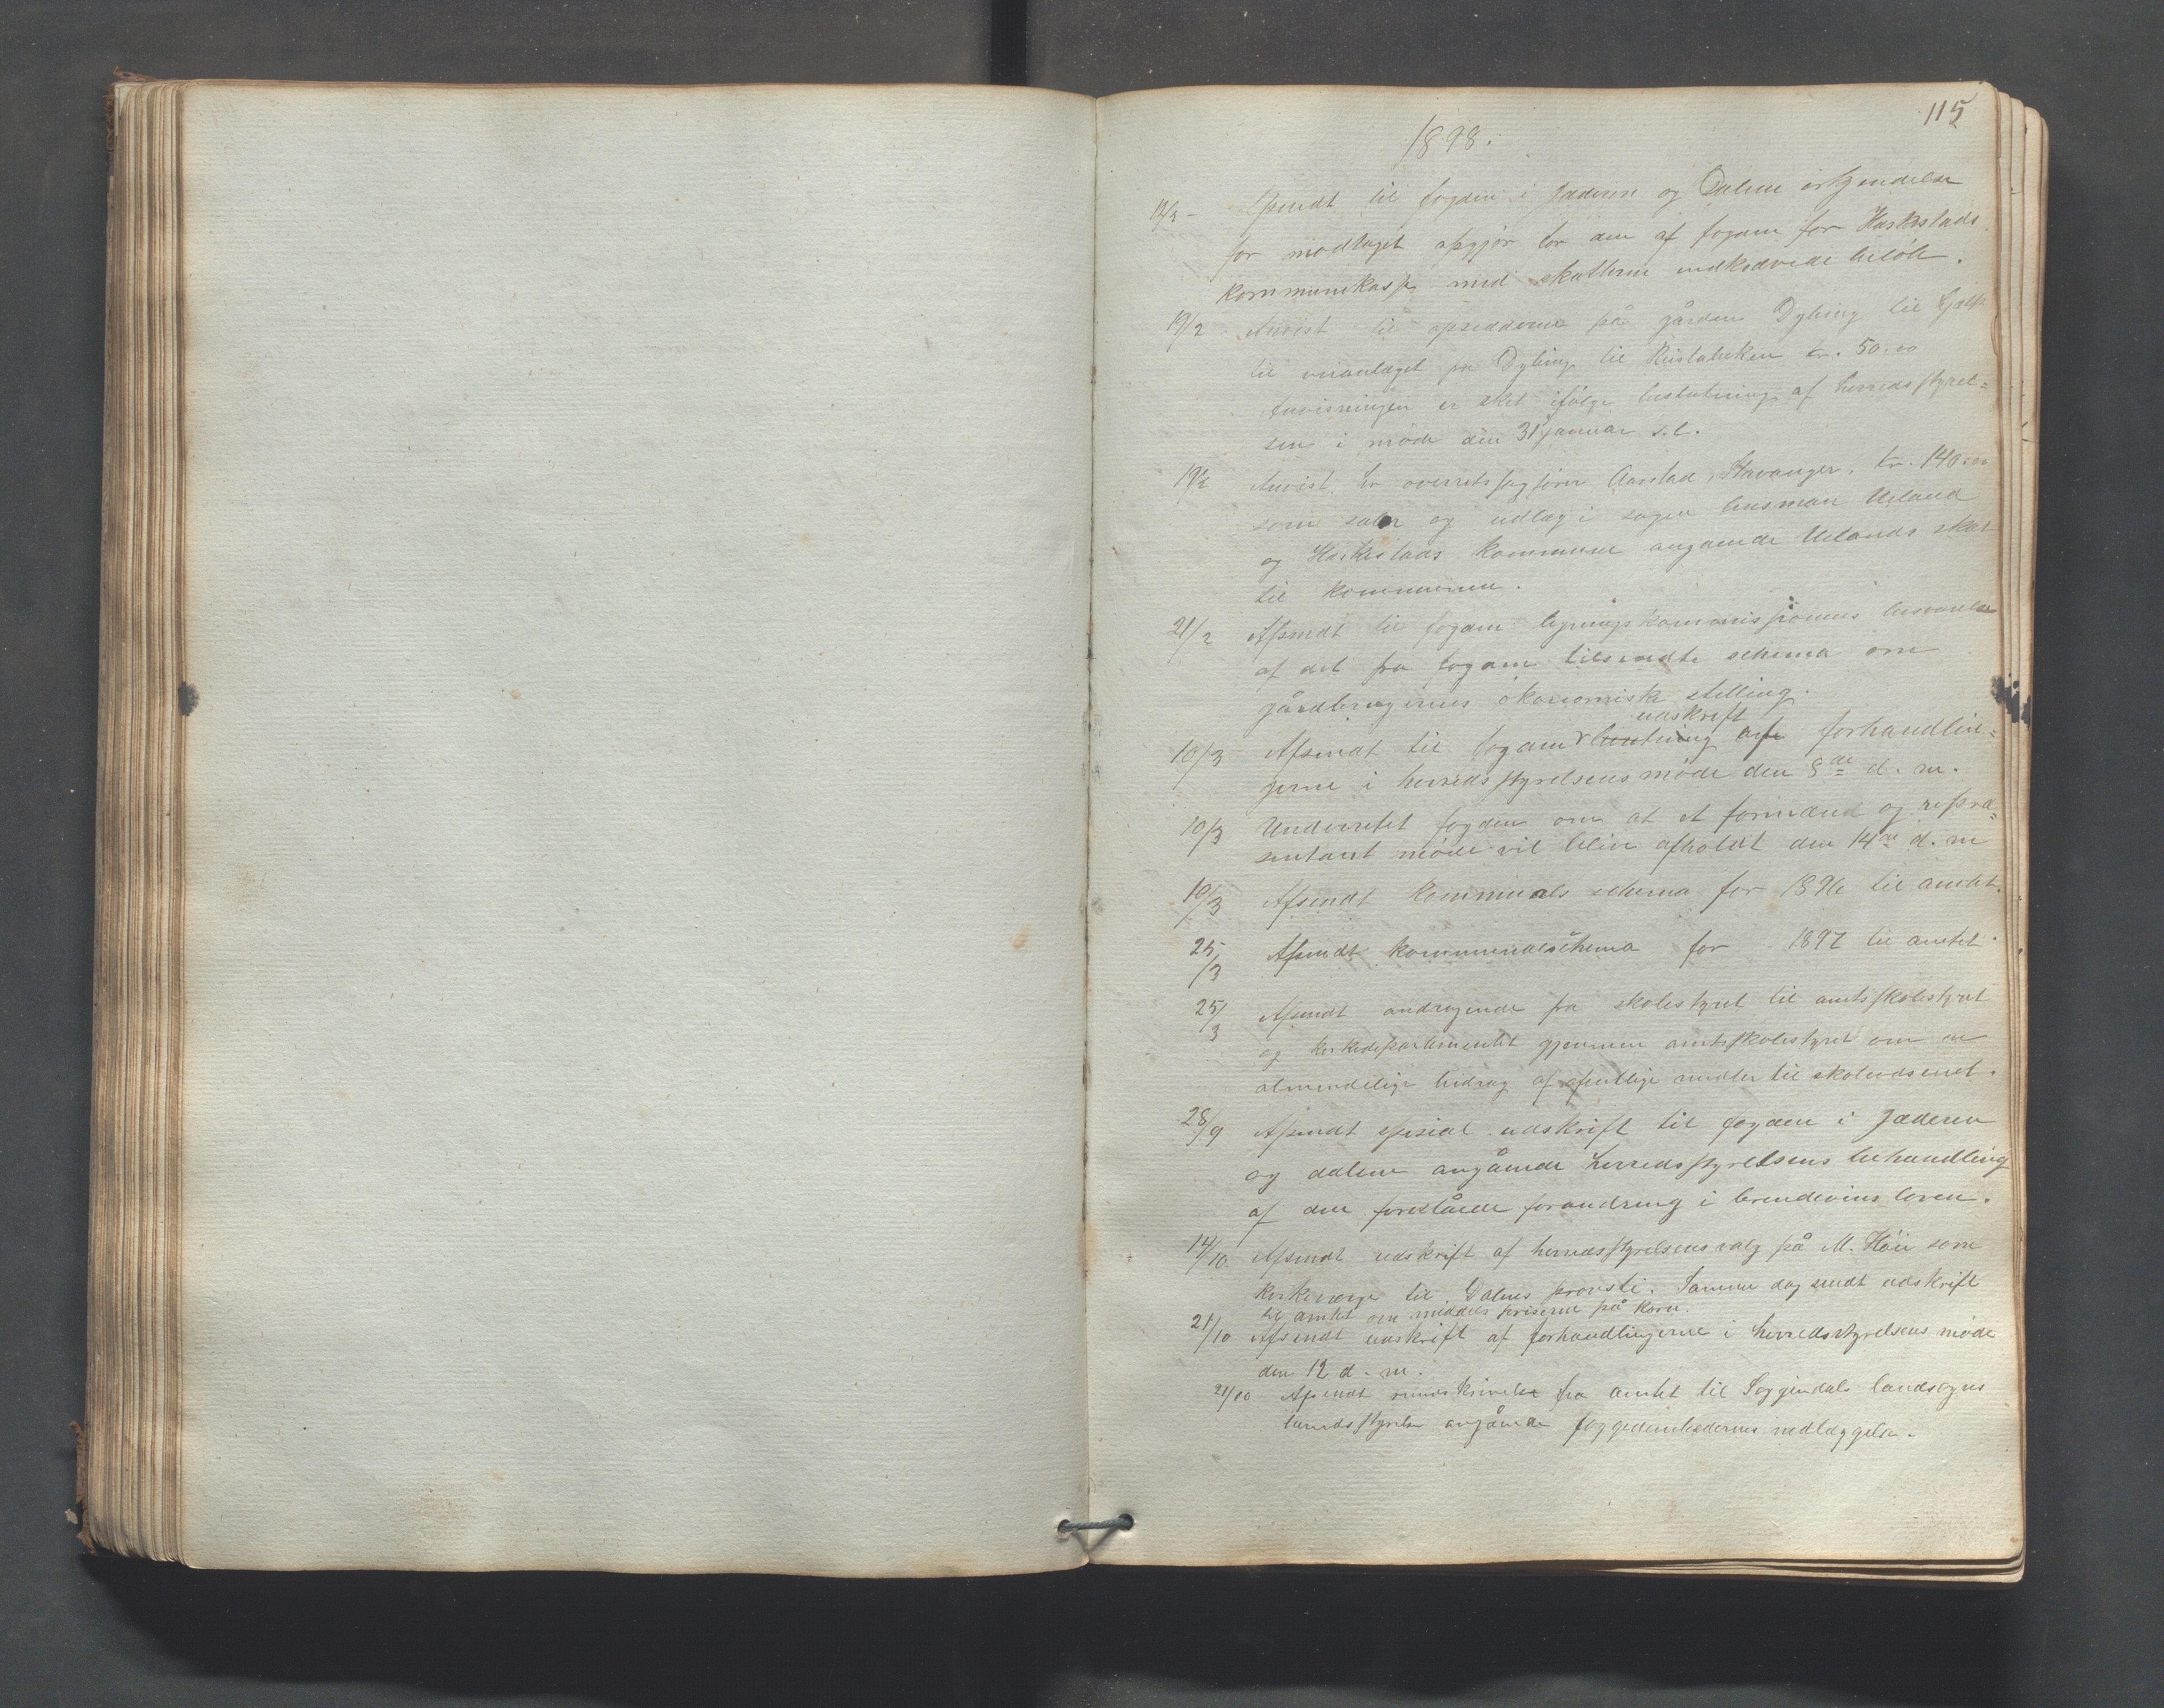 115
1898.
12/3 - Afsendt til fogden i Jæderen og Dalene erkjendelse
for modtaget opgjør for den af fogden for Heskestads
kommunekasse med skatterne indkrævede beløb.
19/2 Anvist til opsidderne på gården Dybing til hjelp
til veianlæget fra Dybing til kr. 50.00
Anvisningen er sket ifølge beslutning af herredsstyrel=
sen i møde den 31 januar s.l.
19/2 Anvist hr overretssagfører Aarstad, Stavanger, kr. 140.00
som salær og udlæg i sagen lensman Ueland
og Heskestads kommune angaaende Uelands skat
til kommunen.
21/2 Afsendt til fogden ligningskommissionens besvarelse
af det fra fogden tilsendte schema om
gårdbrugernes økonomisk stilling.
udskrift
10/3 Afsendt til fogden af forhandlin=
gerne i herredsstyrelsens møde den 8de d. m.
10/3 Underrettet fogden om at et formænd og repræ=
sentant møde vil blive afholdt den 14de d. m
10/3 Afsendt kommunals schema for 1896 til amtet.
25/3 Afsendt kommunalschema for 1897 til amtet.
25/3 Afsendt andragende fra skolestyret til amtsskolestyret
og kirkedepartementet gjennem amtsskolestyret om
almindelige bidrag af ofentlige midler til skolevæsenet.
28/9 Afsendt spesial udskrift til fogden i Jæderen
og dalene angående herredsstyrelsens behandling
af den foreslåede forandring i brendevins loven.
14/10 Afsendt udskrift af herredsstyrelsens valg på M. Høie som
kirkeværge til Dalens provsti. Samme dag sendt udskrift
til amtet om middels priserne på korn.
21/10 Afsendt udskrift af forhandlingerne i herredsstyrelsens møde
den 12 d. m.
21/10 Afsendt rundskrivelse fra amtet til Soggendals landsogns
herredsstyrelse angående foggedembedernes nedlæggelse.